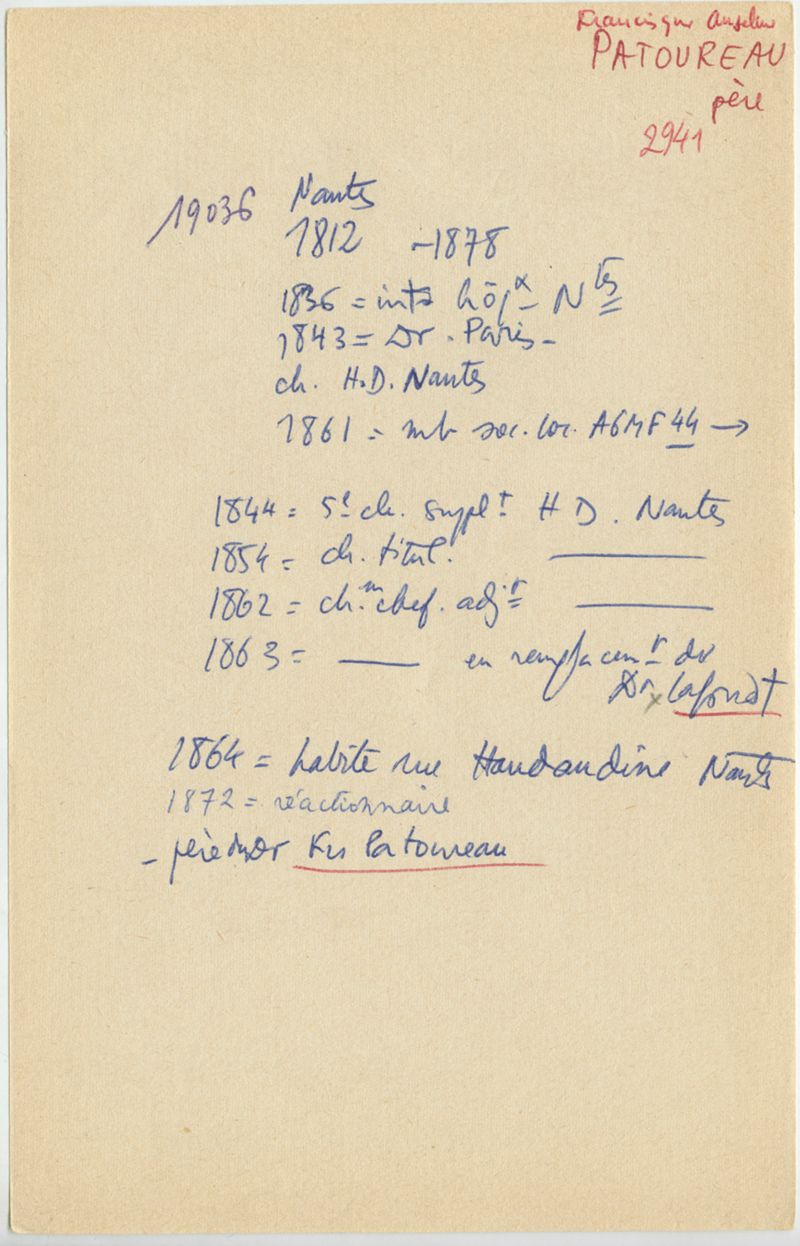 Francisque Anselme
PATOUREAU
père
2941
19036 Nantes
1812 - 1878
1836 = inte hôpx Ntes
1843 = Dr. Paris -
ch. H.D. Nantes
1861 = mb soc. loc. AGMF 44 →
1844 = ch. supplt H D. Nantes
1854 = ch. titul. ———
1862 = chn chef. adjt ———
1863 = ——— en remplacemt du
Dr Lafont
1864 = habite rue Haudaudine Nantes
1872 = réactionnaire
- père du Dr Fis Patoureau